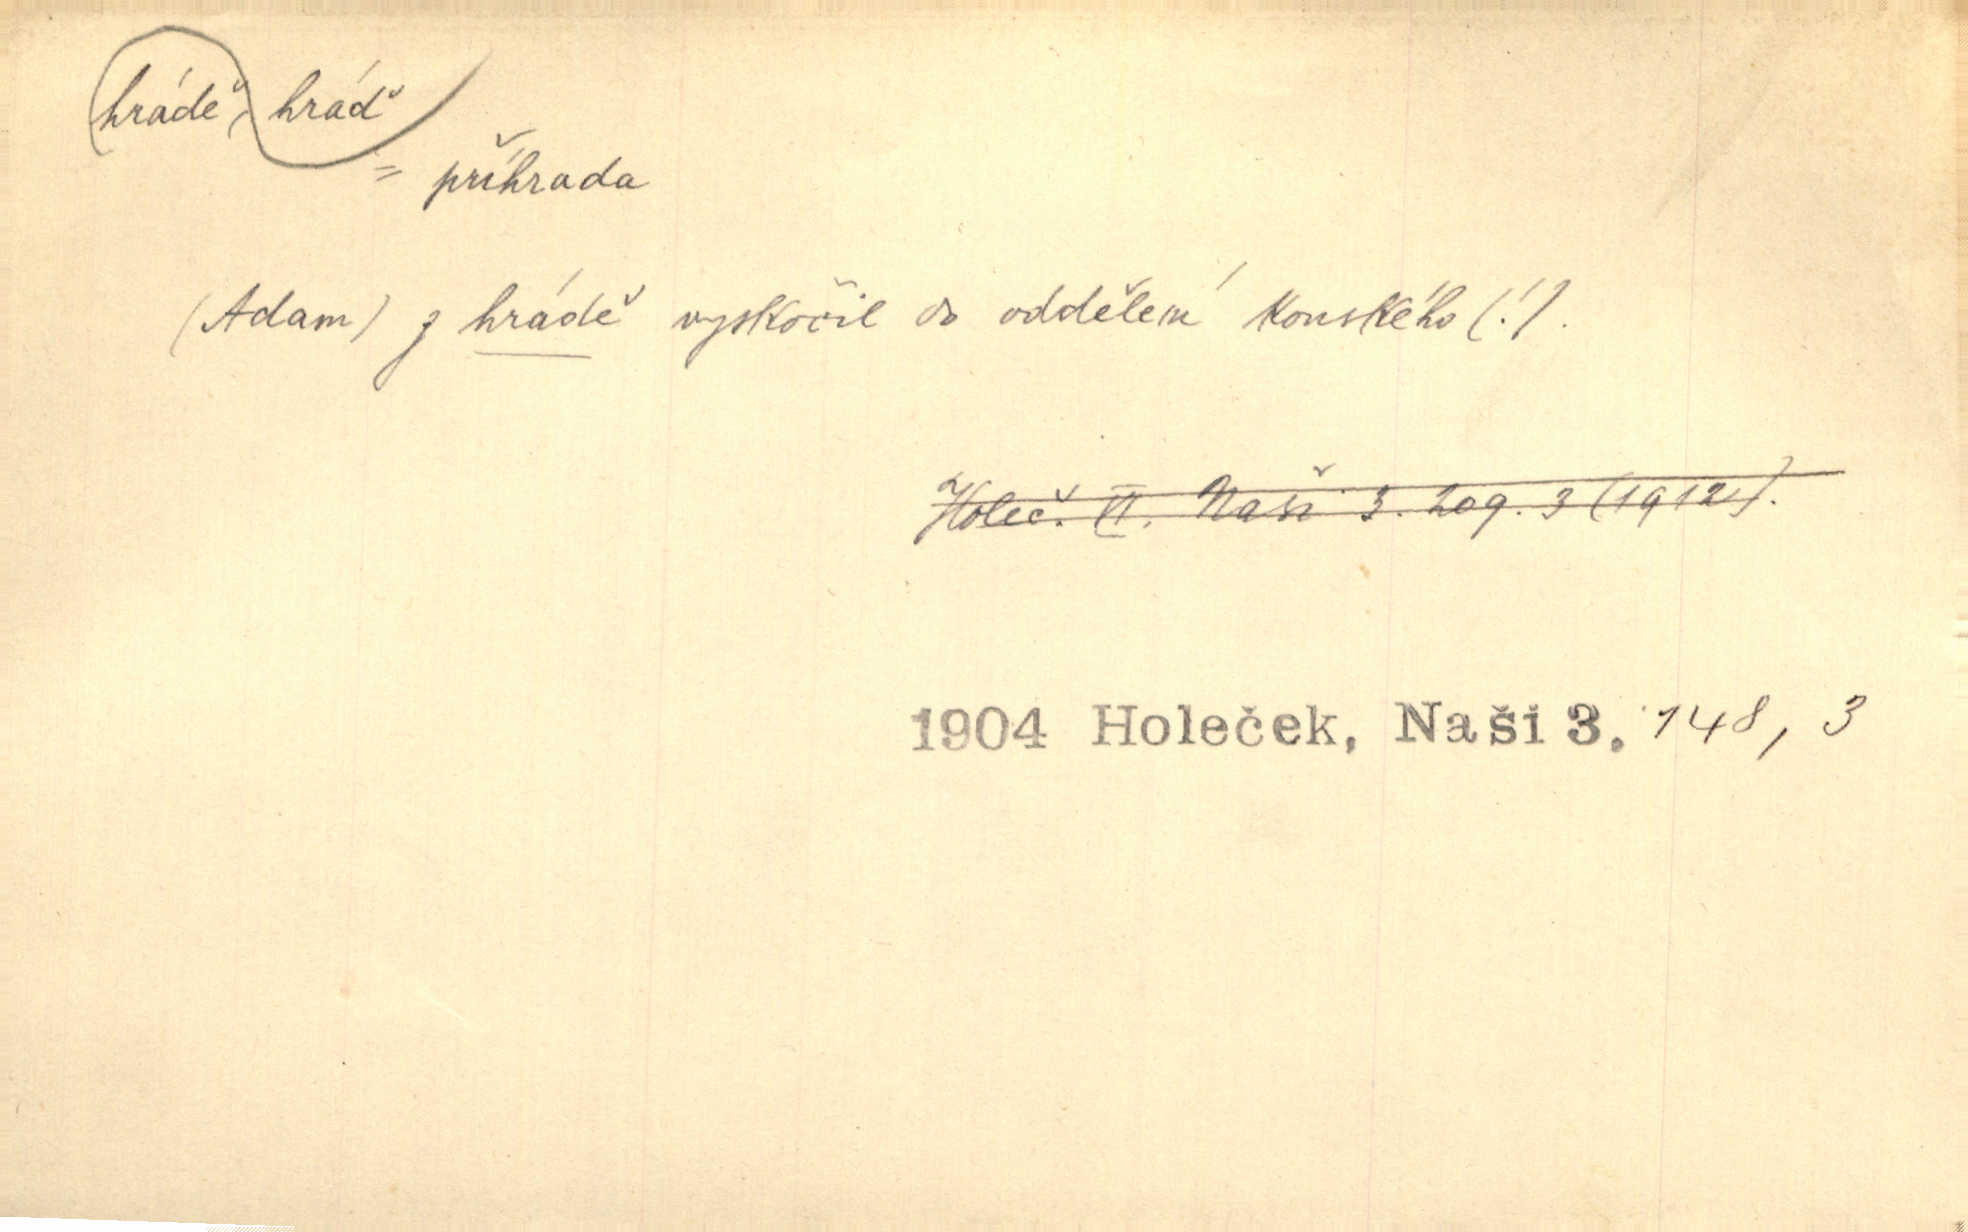 hrádě, hráď
= příhrada
(Adam) z hrádě vyskočil do oddělení konského (!).
Holeč. II. Naši 3. 209. 3 (1912).
1904 Holeček, Naši 3. 148, 3